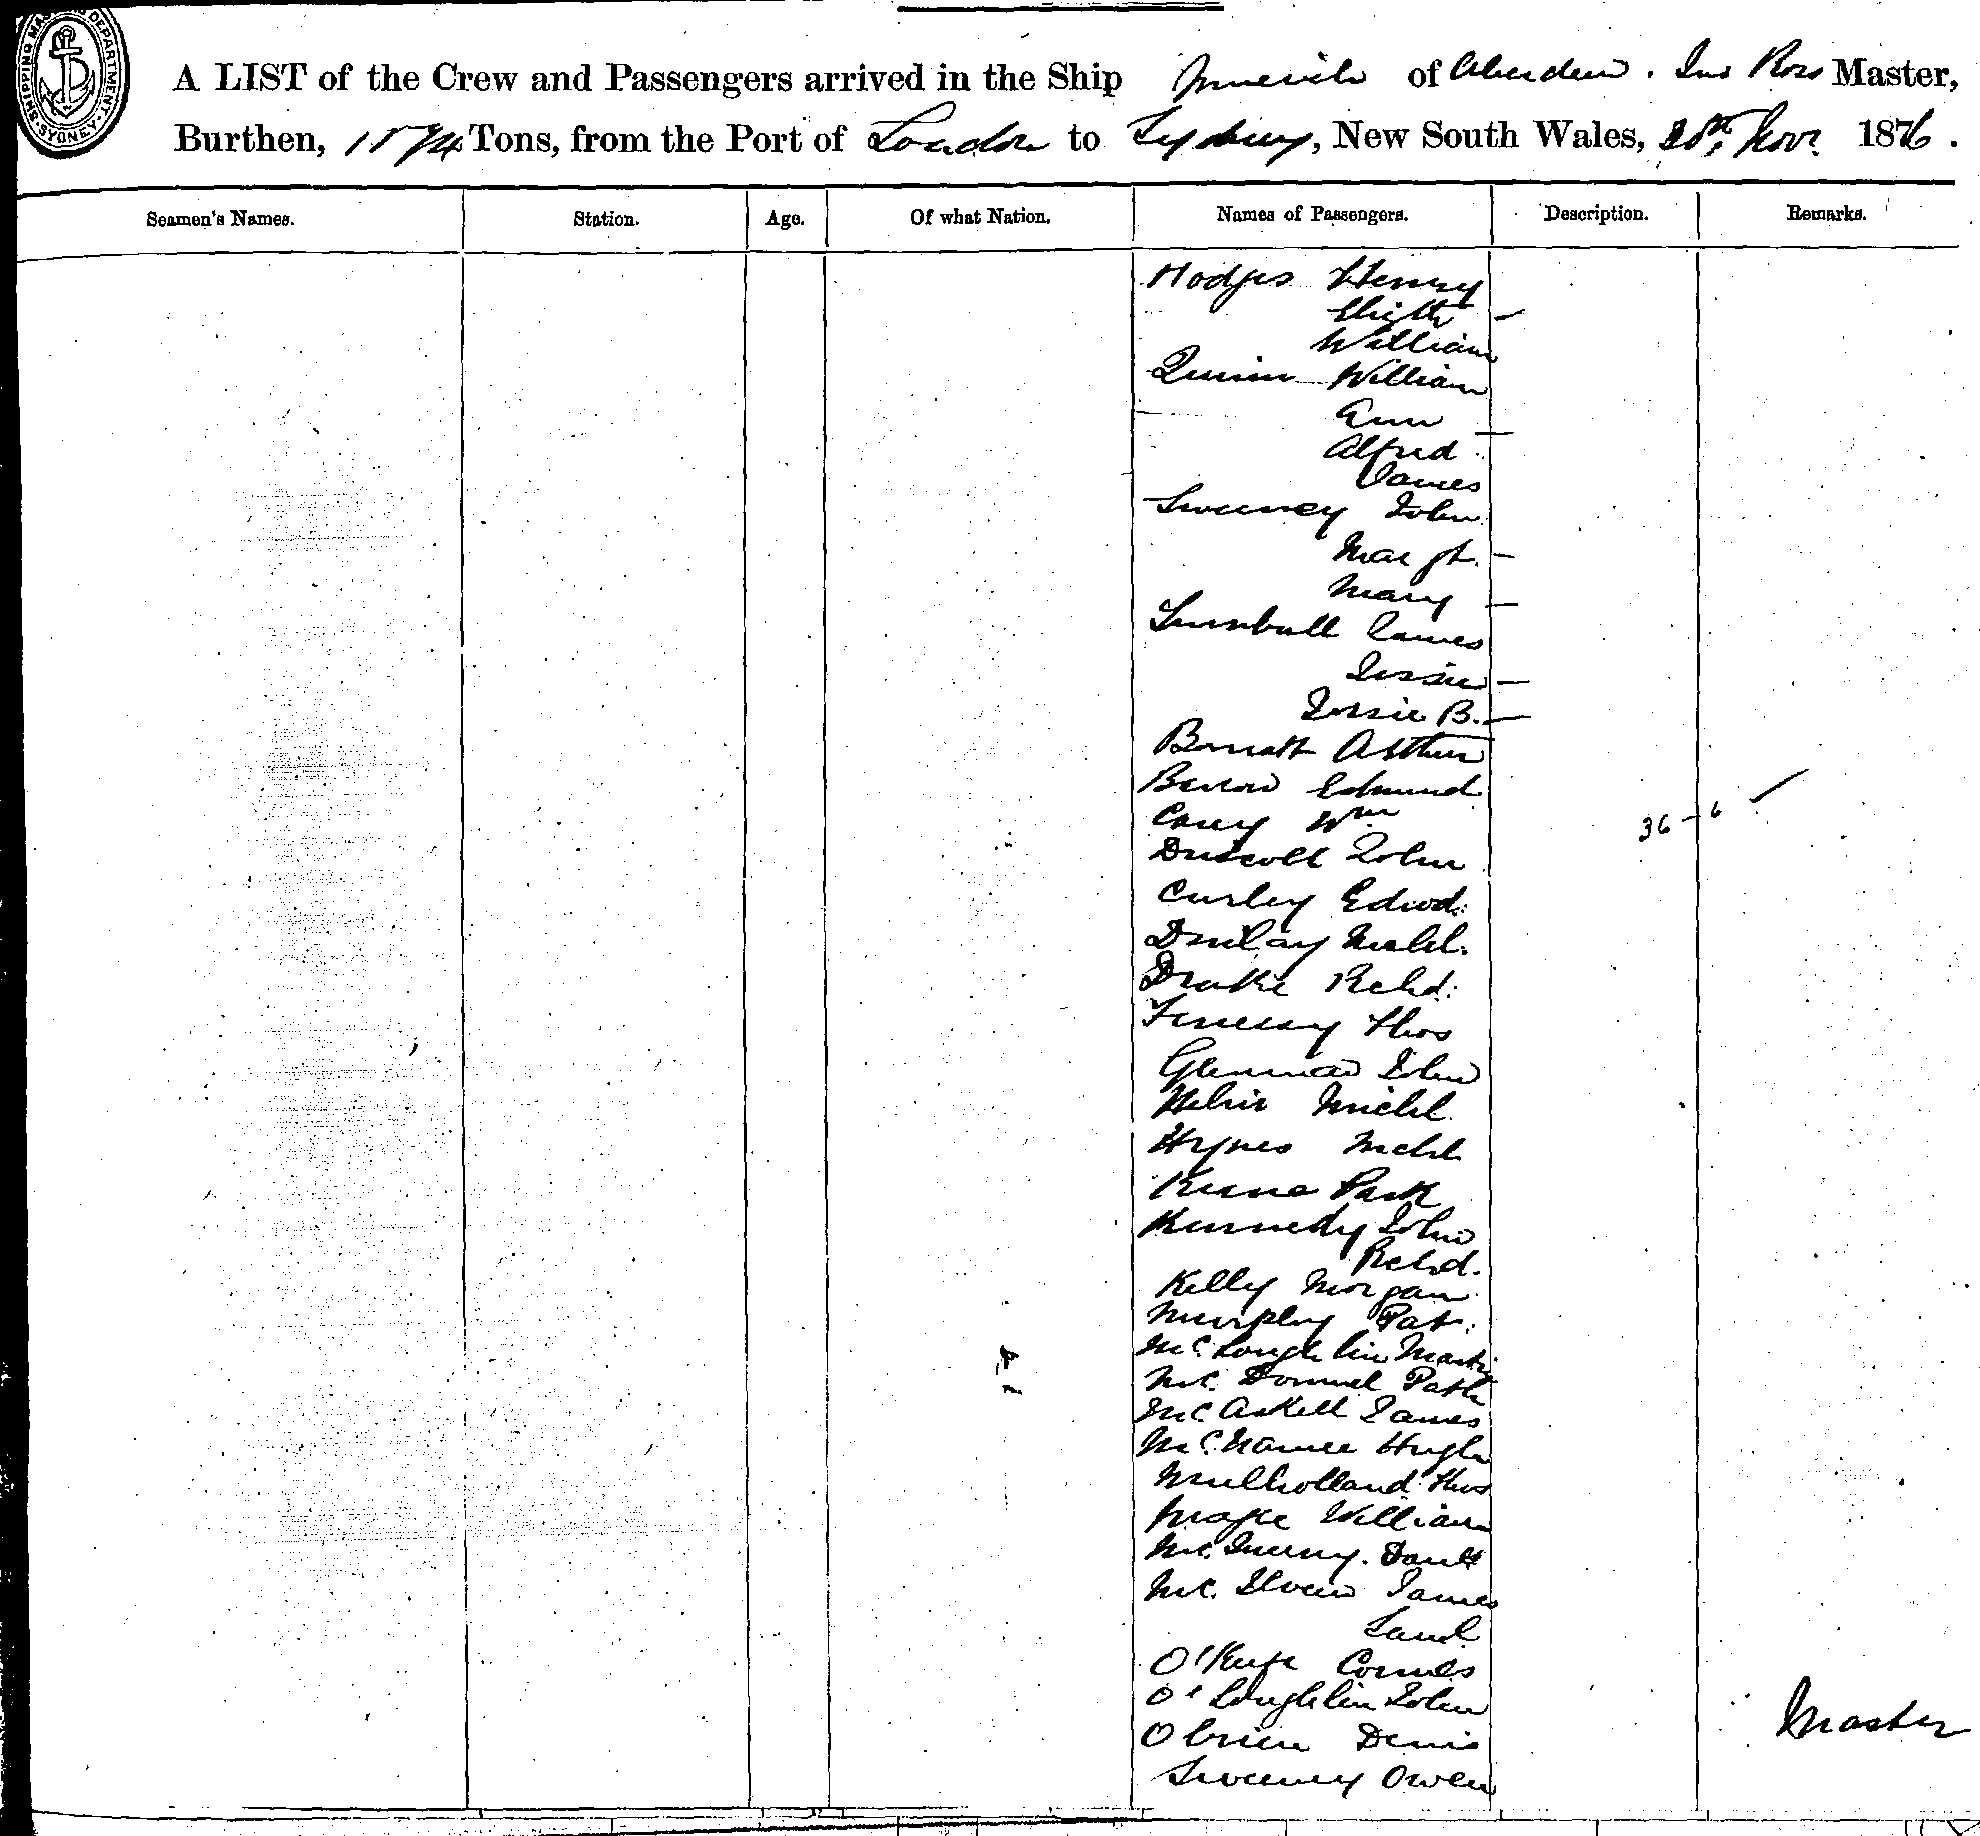 SHIPPING MASTER'S DEPARTMENT SYDNEY
A LIST of the Crew and Passengers arrived in the Ship of Aberdeen. Ross Master,
Burthen, Tons, from the Port of London to Sydney, New South Wales, Novr. 1876.
Seamen's Names. Station. Age. Of what Nation. Names of Passengers. Description. Remarks.
Hodges Henry
Elizth
William
Quinn William
Ann
Alfred
James
Sweeney John
Margt.
Mary
Turnbull James
Jessie
Jessie B.
Arthur
Edmund
Wm
36 - 6
Driscoll John
Curley Edwd.
Michl.
Drake Richd.
Thos
John
Michl.
Hynes Michl
Patk
Kennedy John
Richd.
Kelly Morgan
Murphy Pat.
McLoughlin Martin
Mc. Donnel Patk
McAskell James
McNamee Hugh
Mulholland Thos
William
Mc.
Mc. James
Saml
O'Keefe
O'Loughlin John
Master
O'brien Denis
Sweeney Owen